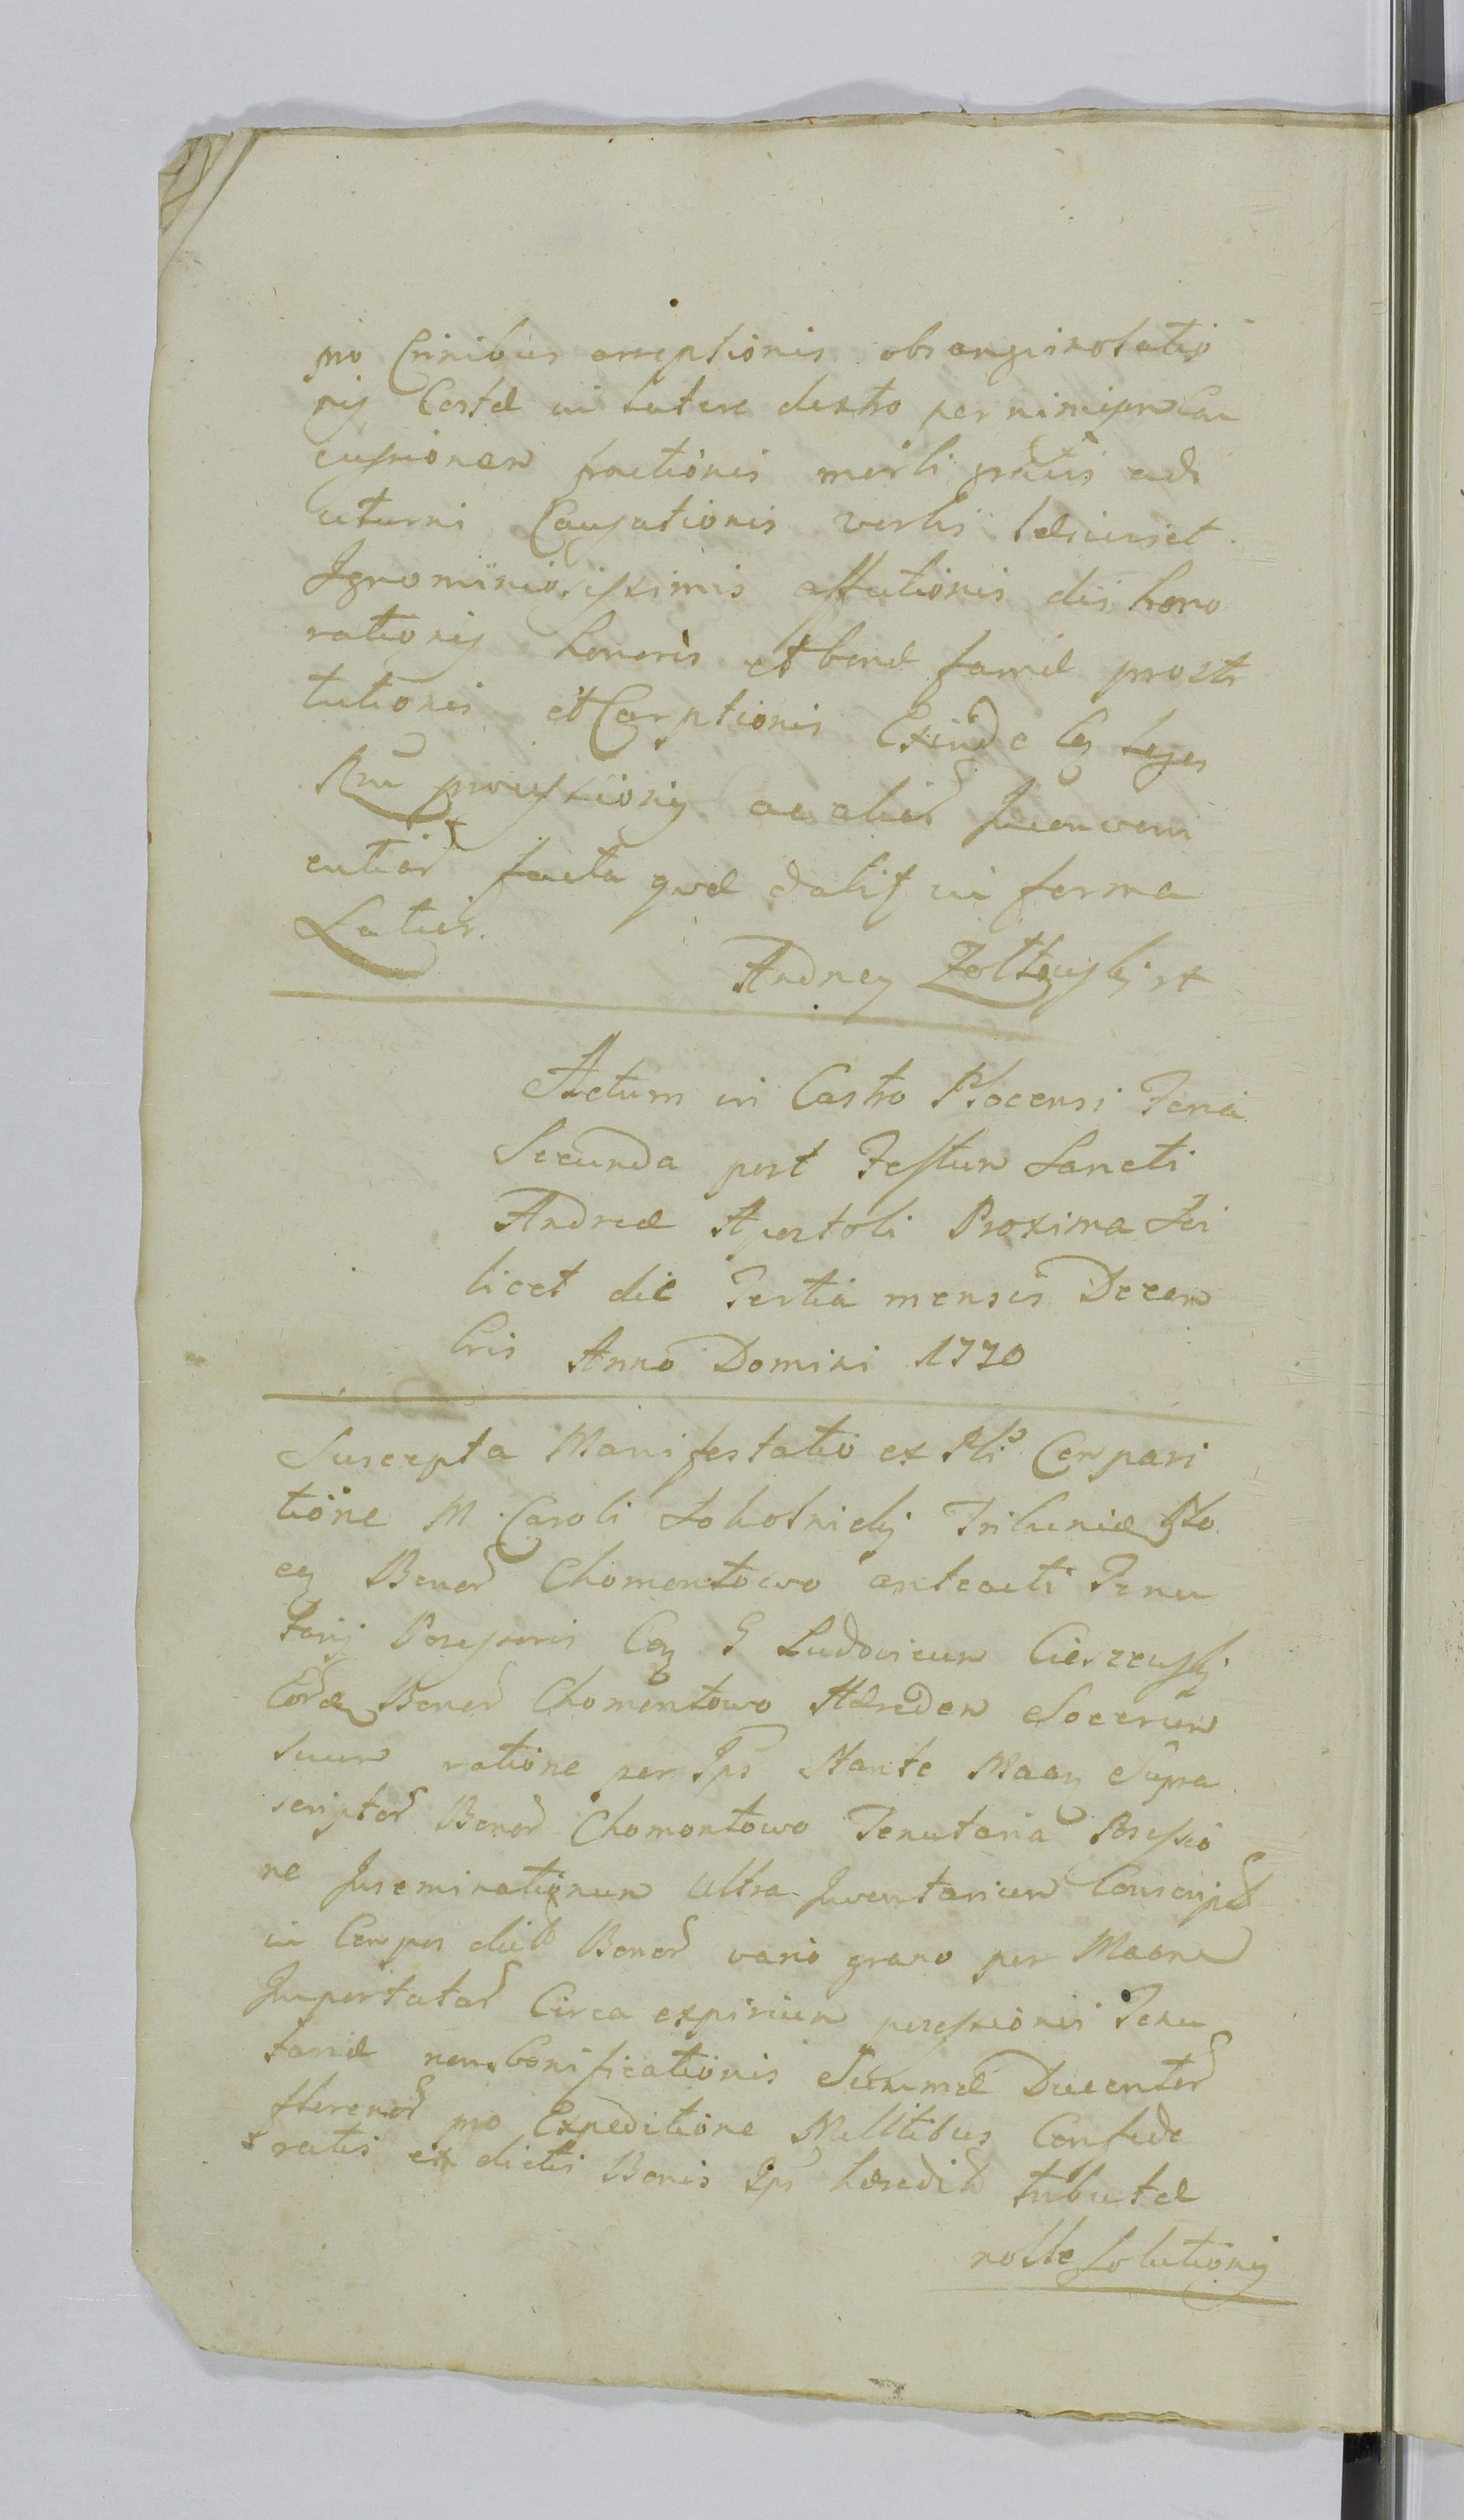 pro Crinibus arreptionis obsanguinolatio
nis Costæ in Latere dextro per nimiam Con
cussionem fractionis morbi gratis adi
uturni Causationis verbis lædsiuis et
Ignominiosissimis affationis dishono
rationis honoris et bonæ famæ prosti
tutionis et Carptionis Exinde Cog Leges
Rni processionis ac alior Inconveni
entiar facta quæ dabit in forma
Latius.
Andrzey Zołtowski
Actum in Castro Plocensi Feria
Secunda post Festum Sancti
Andreæ Apostoli Proxima Sci
licet die Tertia mensis Decem
bris Anno Domini 1770
Suscepta Manifestatio ex Pli Compari
tione M. Caroli Sokolnicky Tribunidæ Plo
cen Bonor Chomentowo anteacti Tenu
tarij Possessoris Con G Ludovicum Cieszewsky
Eord Bonor Chomentowo Hæredem Socerum
Suum ratione per Ips Stante Maan Supra
scriptor Bonor Chomontowo Tenutaria Possessio
ne Inseminationum Ultra Inventarium Conscript
in Campos dict Bonor vario grano per Maane
Importatar Circa expirium possessionis Tenu
tariæ non Bonificationis Summæ Ducentor
florenor pro Expeditione Millitibus Confede
ratis ex dictis Bonis Ips hæredit tributæ
nolle Solutionis